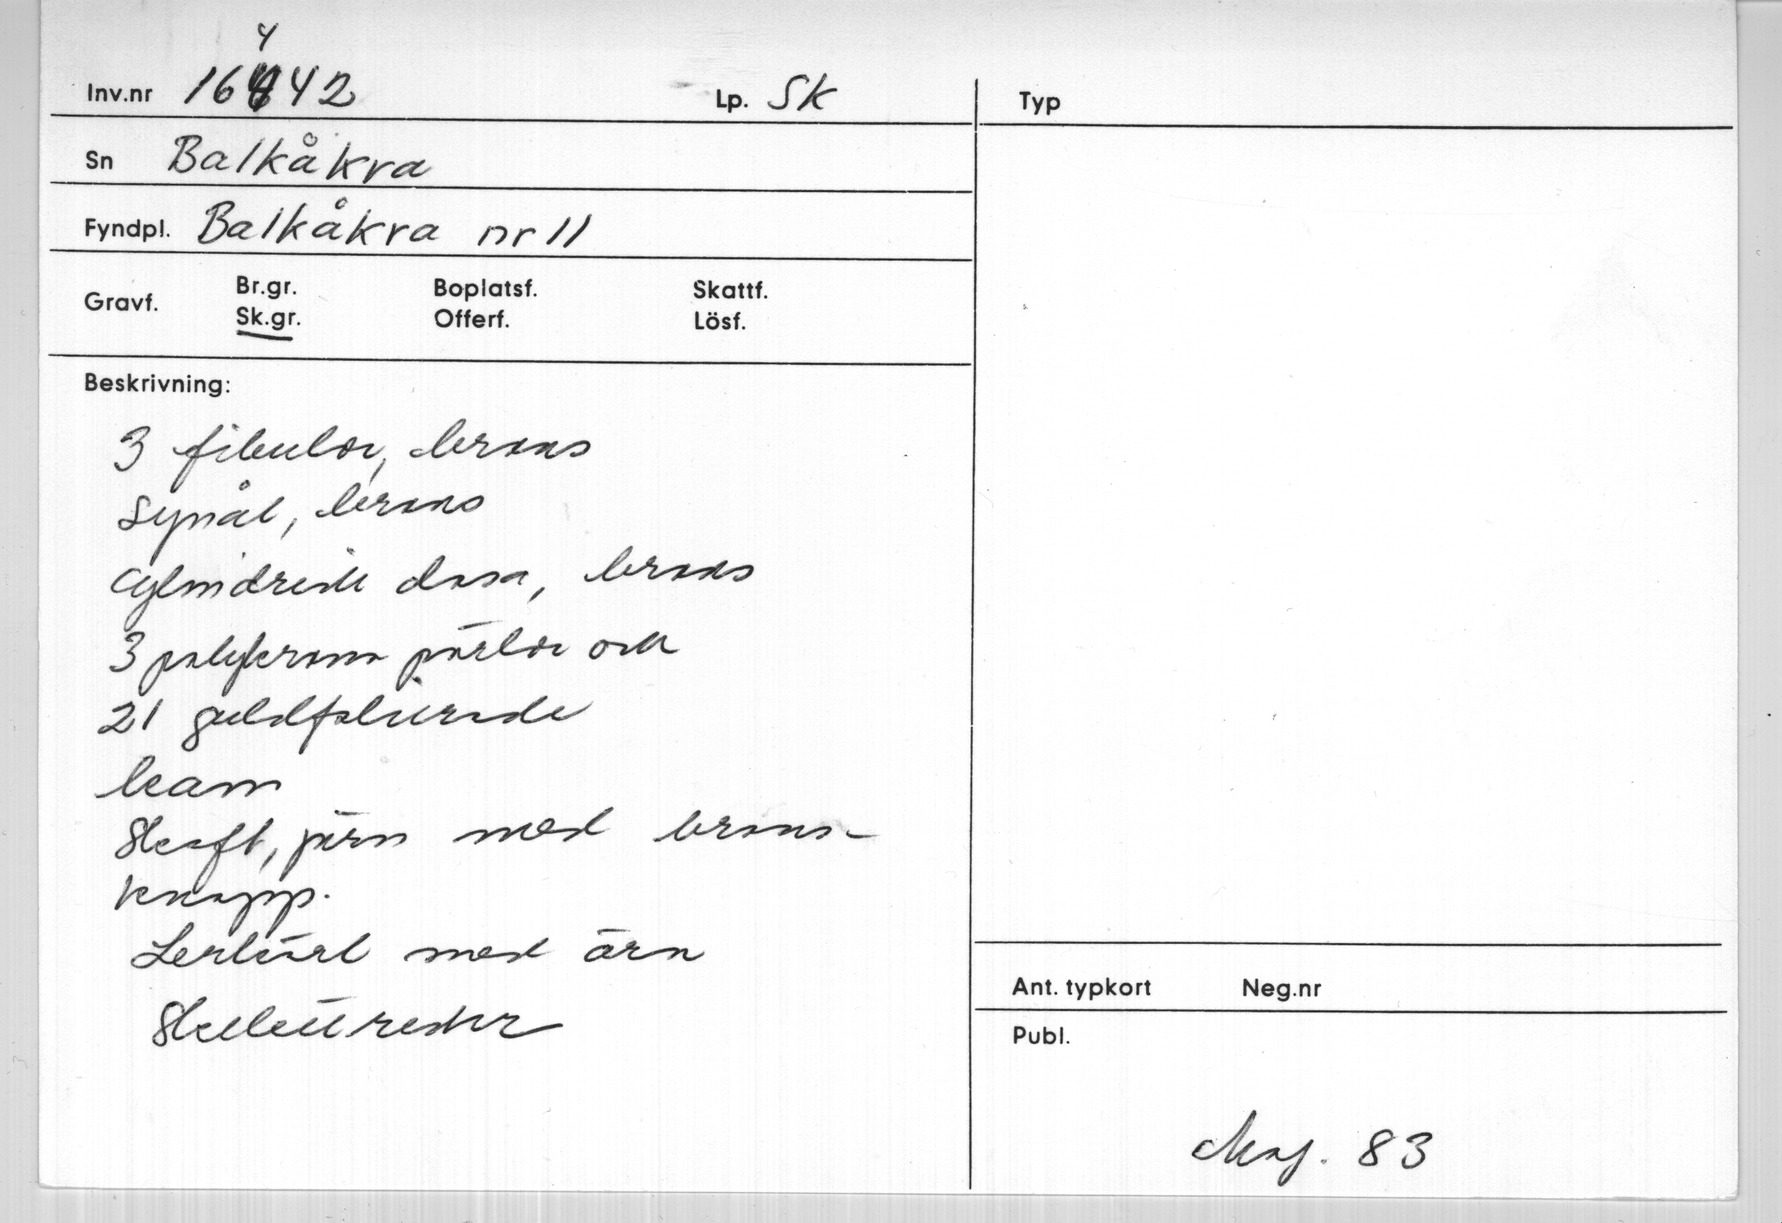 Inv.nr 16442 Lp. Sk
Typ
Sn Balkåkra
Fyndpl. Balkåkra nr 11
Gravf. Br.gr. Boplatsf. Skattf.
Sk.gr. Offerf. Lösf.
Beskrivning:
3 fibulor, brons
Synål, brons
Cylindrisk dosa, brons
3 polykroma pärlor och
21 guldfolierade
kam
Skaft, järn med brons-
knapp.
Lerkärl med öra
Skelettrester
Ant. typkort Neg.nr
Publ.
83